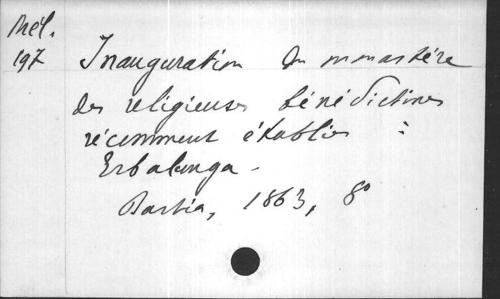 Mél.
197
Inauguration du monastère
des religieuses bénédictines
récemment établies à
Erbalunga -
Bastia, 1863, 8°